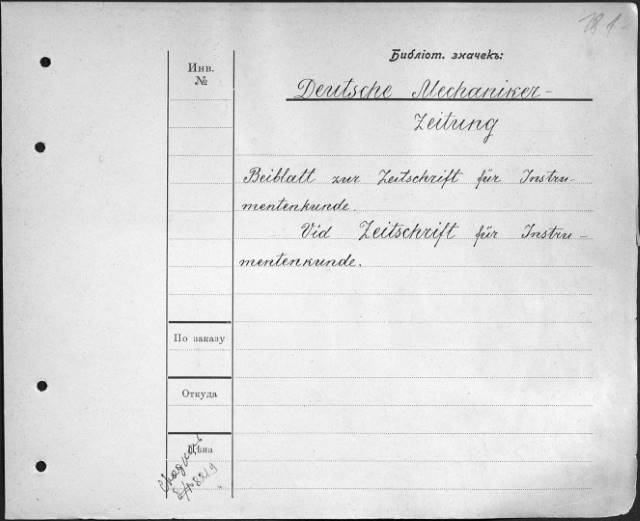 Библіот. значекъ:
Инв.
№
Deutsche Mechaniker-
Zeitung
Beiblatt zur Zeitschrift für Instru-
mentenkunde.
Vid Zeitschrift für Instru-
mentenkunde.
По заказу
Откуда
Цѣна